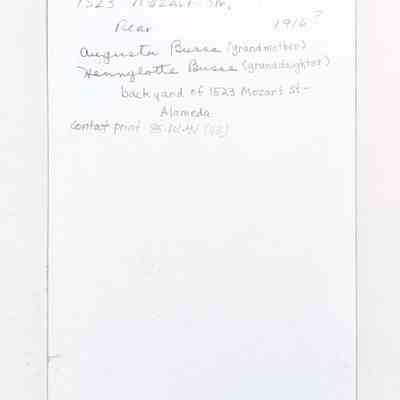 1523 Mozart Str.
Rear 1916?
Augusta Busse (grandmother)
Hennylotte Busse (granddaughter)
backyard of 1523 Mozart St-
Alameda
contact print